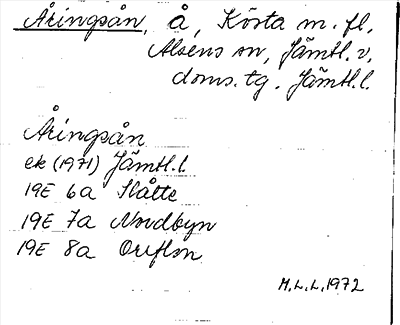 Åringsån, å, Kösta m. fl,
Alsens sn, Jämtl. v,
doms. tg. Jämtl. l.
Åringsån
ek (1971) Jämtl. l
19E 6a Slåtte
19E 7a Nordbyn
19E 8a
M. L. L. 1972